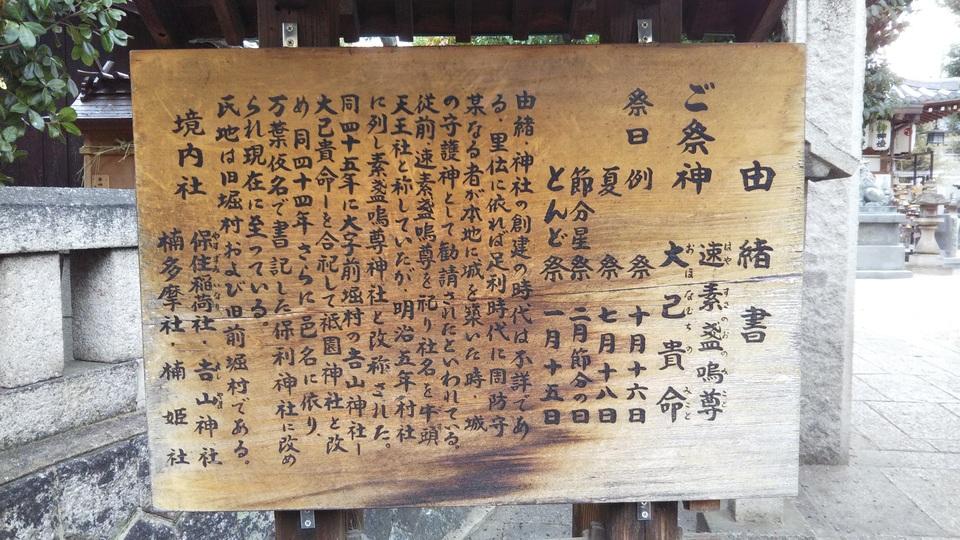 由緒書
ご祭神 速素盞嗚尊
大己貴命
祭日 例祭 十月十六日
夏祭 七月十八日
節分星祭 二月節分の日
とんど祭 一月十五日
由緒、神社の創建の時代は不詳であ
る、里伝に依れば足利時代に周防守
某なる者が本地に城を築いた時、城
の守護神として勧請されたといわれている。
従前、速素盞嗚尊を祀り社名を牛頭
天王社と称していたが、明治五年村社
に列し素盞嗚尊神社と改称された。
同四十五年に大字前堀村の吉山神社ー
大己貴命ーを合祀して祇園神社と改
め、同四十四年さらに邑名に依り、
万葉仮名で書記した保利神社に改め
られ現在に至つている。
氏地は旧堀村および旧前堀村である。
境内社 保住稲荷社・吉山神社
楠多摩社・楠姫社